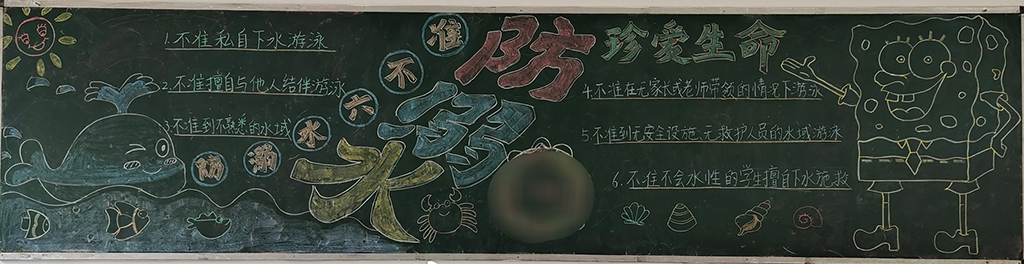 防溺水
防溺水六不准
1.不准私自下水游泳
2.不准擅自与他人结伴游泳
3.不准到不熟悉的水域
珍爱生命
4.不准在无家长或老师带领的情况下游泳
5.不准到无安全设施、无救护人员的水域游泳
6.不准不会水性的学生擅自下水施救